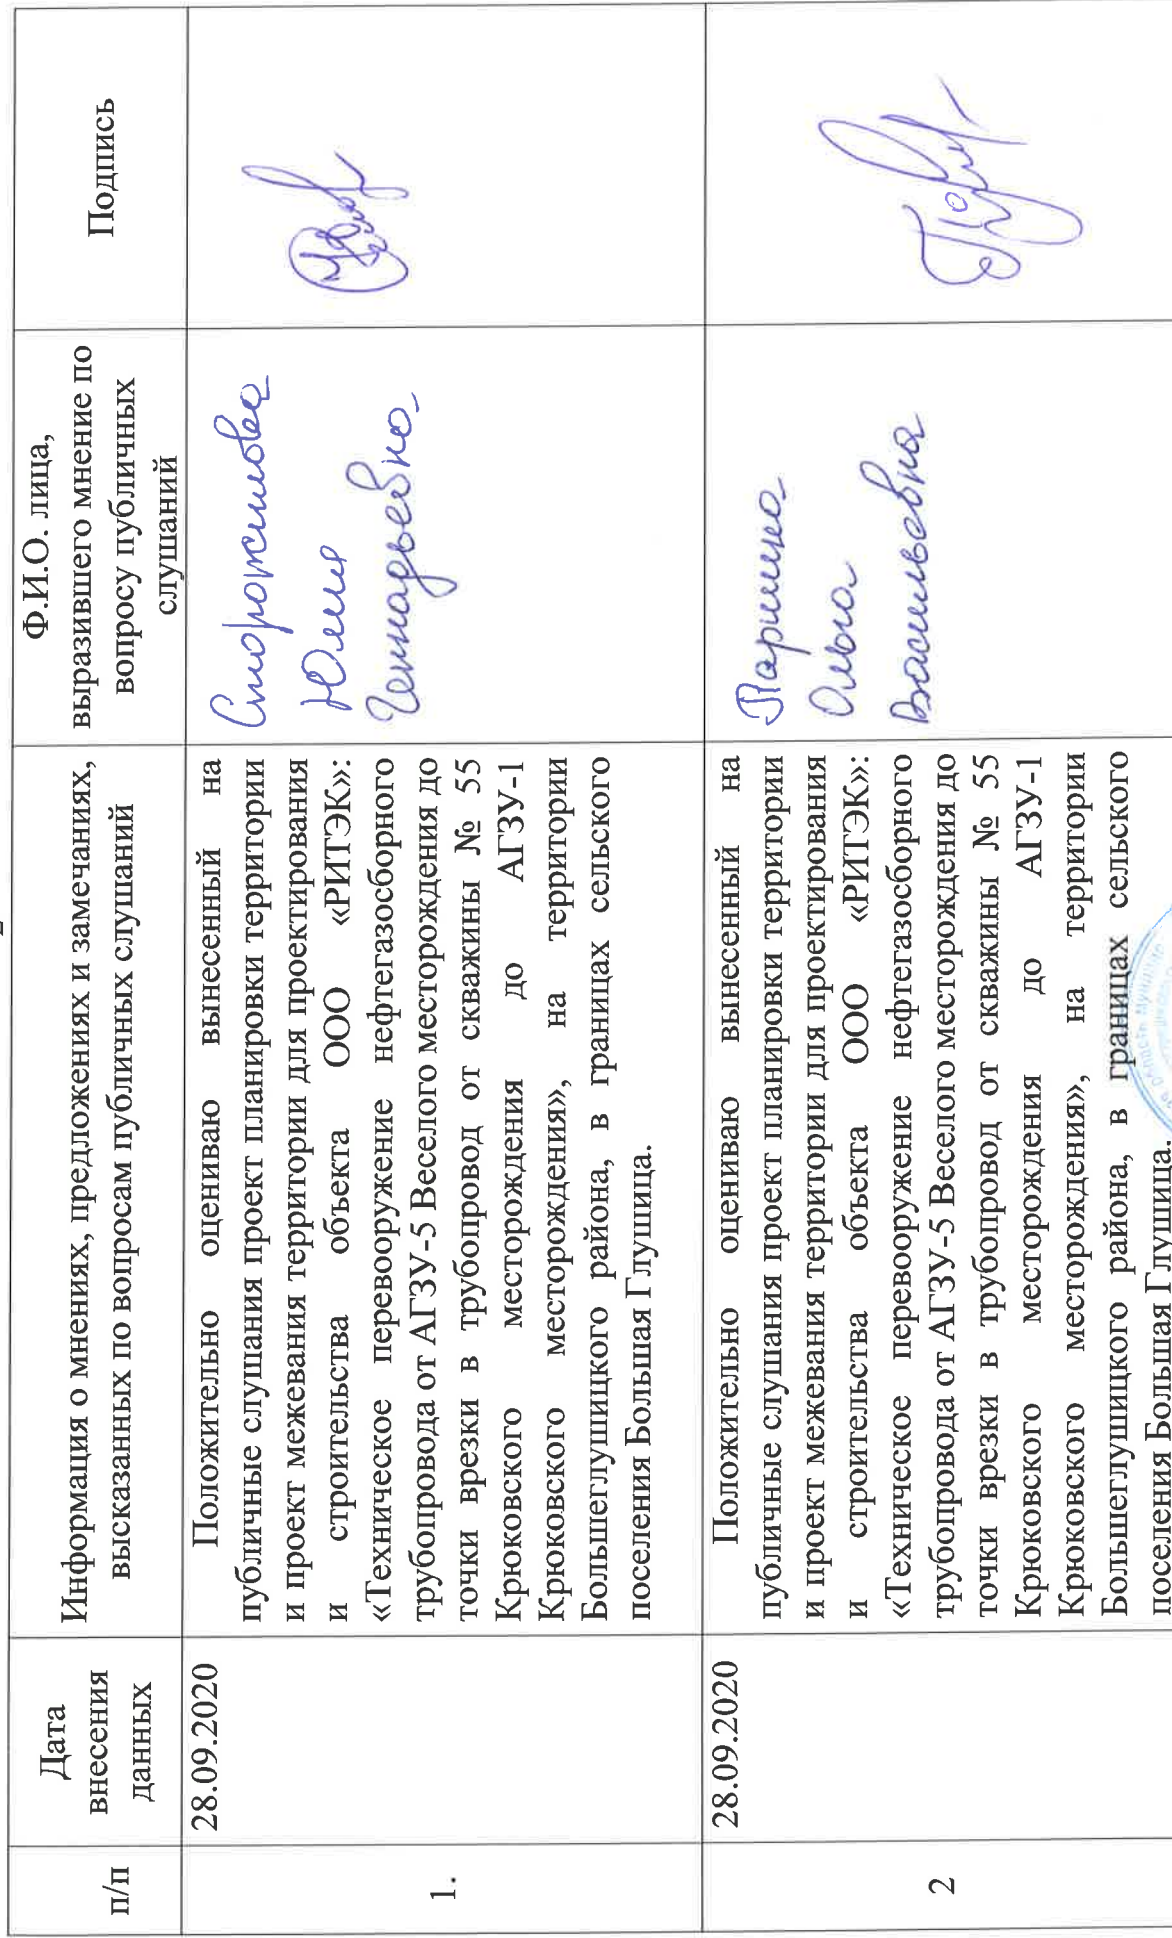 п/п
Дата
внесения
данных
Информация о мнениях, предложениях и замечаниях,
высказанных по вопросам публичных слушаний
Ф.И.О. лица,
выразившего мнение по
вопросу публичных
слушаний
Подпись
1.
28.09.2020
Положительно оцениваю вынесенный на
публичные слушания проект планировки территории
и проект межевания территории для проектирования
и строительства объекта ООО «РИТЭК»:
«Техническое перевооружение нефтегазосборного
трубопровода от АГЗУ-5 Веселого месторождения до
точки врезки в трубопровод от скважины № 55
Крюковского месторождения до АГЗУ-1
Крюковского месторождения», на территории
Большеглушицкого района, в границах сельского
поселения Большая Глушица.
Сторожилова
Юлия
Геннадьевна
2
28.09.2020
Положительно оцениваю вынесенный на
публичные слушания проект планировки территории
и проект межевания территории для проектирования
и строительства объекта ООО «РИТЭК»:
«Техническое перевооружение нефтегазосборного
трубопровода от АГЗУ-5 Веселого месторождения до
точки врезки в трубопровод от скважины № 55
Крюковского месторождения до АГЗУ-1
Крюковского месторождения», на территории
Большеглушицкого района, в границах сельского
поселения Большая Глушица.
Паршина
Ольга
Васильевна